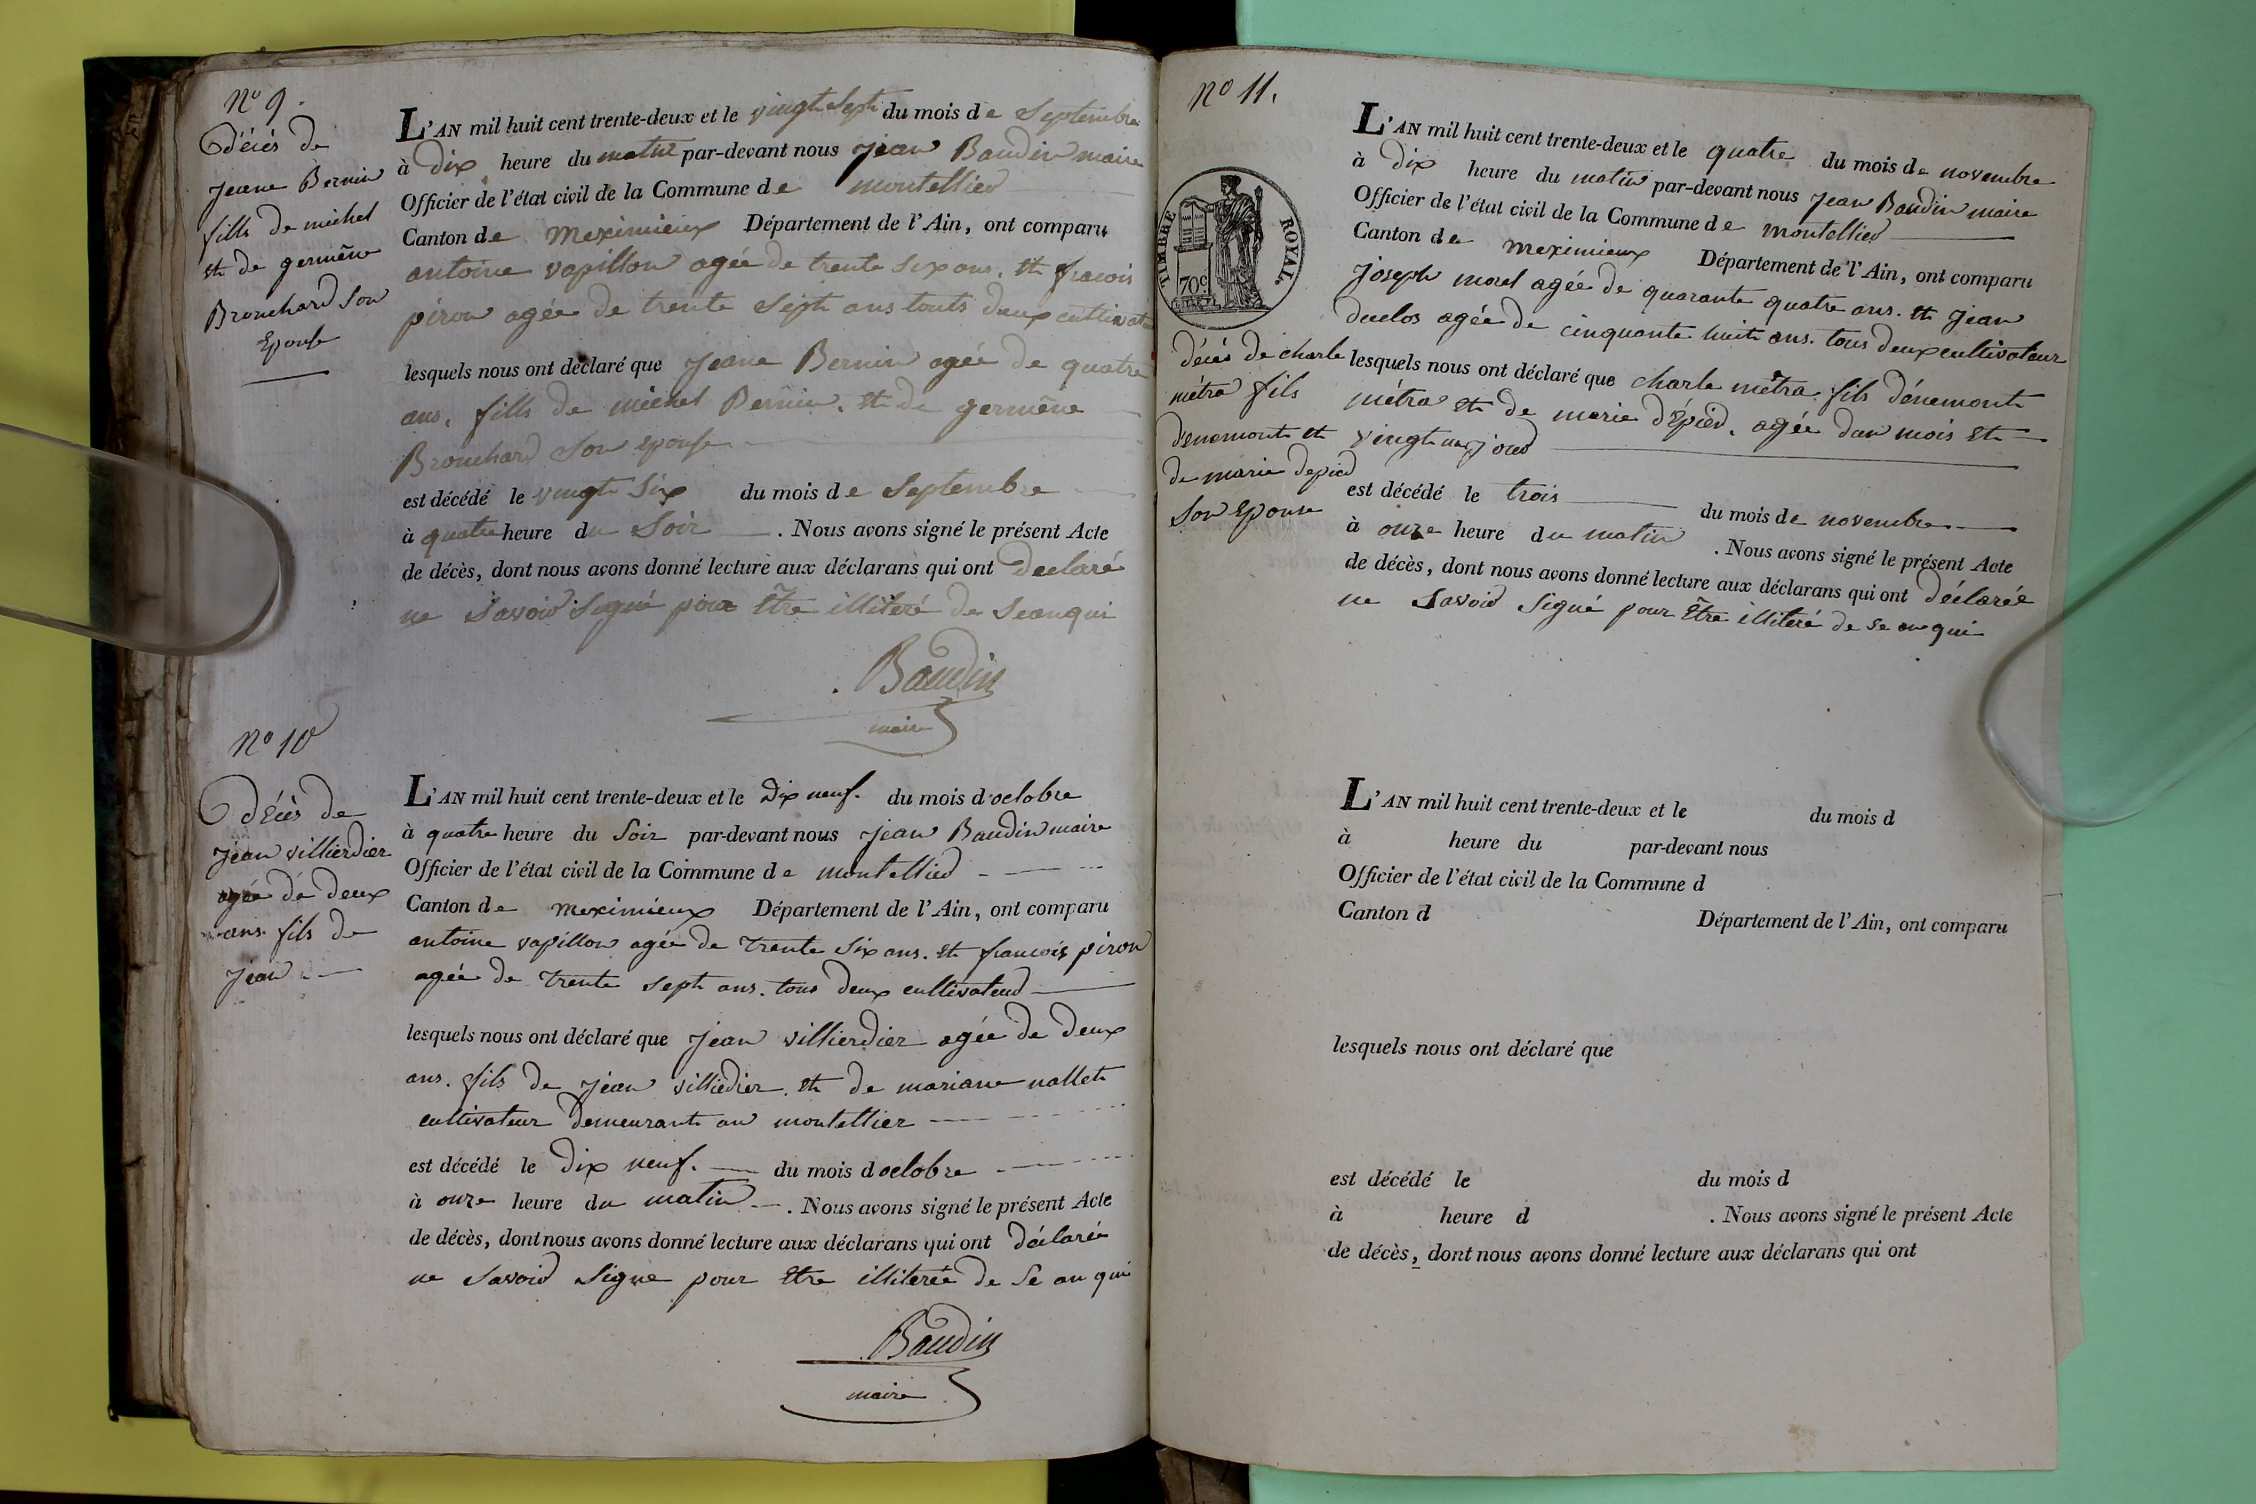 N° 9.
Décés de
Jeane Bernin
fille de michel
et de germêne
Brouchard Son
Epouse
L'AN mil huit cent trente-deux et le vingt Sept du mois de Septembre
à Dix heure du matin par-devant nous Jean Baudin maire
Officier de l'état civil de la Commune de montellier
Canton de meximieux Département de l'Ain, ont comparu
antoine vapillon agée de trente six ans. et fracois
piron agée de trente Sept ans touts deux cultivat
lesquels nous ont déclaré que Jeane Bernin agée de quatre
ans. fille de michel Bernin. et de germêne
Brouchard Son epouse
est décédé le vingt Six du mois de Septembre
à quatre heure du Soir. Nous avons signé le présent Acte
de décès, dont nous avons donné lecture aux déclarans qui ont declaré
ne Savoir Signé pour être illiteré de Seanqui
Baudin
maire
N° 10
Décès de
Jean villierdier
agée de deux
ans. fils de
Jean
L'AN mil huit cent trente-deux et le Dix neuf. du mois d'octobre
à quatre heure du Soir par-devant nous Jean Baudin maire
Officier de l'état civil de la Commune de montellier
Canton de meximieux Département de l'Ain, ont comparu
antoine vapillon agée de trente Six ans. et francois piron
agée de trente Sept ans. tous deux cultivateur
lesquels nous ont déclaré que Jean villierdier agée de deux
ans. fils de Jean villiedier. et de mariane nallet
cultivateur demeurant au montellier
est décédé le dix neuf. du mois d octobre
à onze heure du matin. Nous avons signé le présent Acte
de décès, dont nous avons donné lecture aux déclarans qui ont déclarée
ne Savoir Signe pour Etre illiterée de Se an qui
Baudin
maire
N° 11.
TIMBRE ROYAL.
70c.
décés de charle
métra fils
d'enemont et
de marie depied
Son Epouse
L'AN mil huit cent trente-deux et le quatre du mois de novembre
à Dix heure du matin par-devant nous Jean Baudin maire
Officier de l'état civil de la Commune de montellier
Canton de meximieux Département de l'Ain, ont comparu
Joseph morel agée de quarante quatre ans. et Jean
duclos agée de cinquante huit ans. tous deux cultivateur
lesquels nous ont déclaré que charle métra. fils d'énemont
métra et de marie d'Epied. agée d'un mois et
vingt un jour
est décédé le trois du mois de novembre
à onze heure du matin. Nous avons signé le présent Acte
de décès, dont nous avons donné lecture aux déclarans qui ont déclarée
ne Savoir Signé pour Être illiteré de se an qui
L'AN mil huit cent trente-deux et le du mois d
à heure du par-devant nous
Officier de l'état civil de la Commune d
Canton d Département de l'Ain, ont comparu
lesquels nous ont déclaré que
est décédé le du mois d
à heure d . Nous avons signé le présent Acte
de décès, dont nous avons donné lecture aux déclarans qui ont